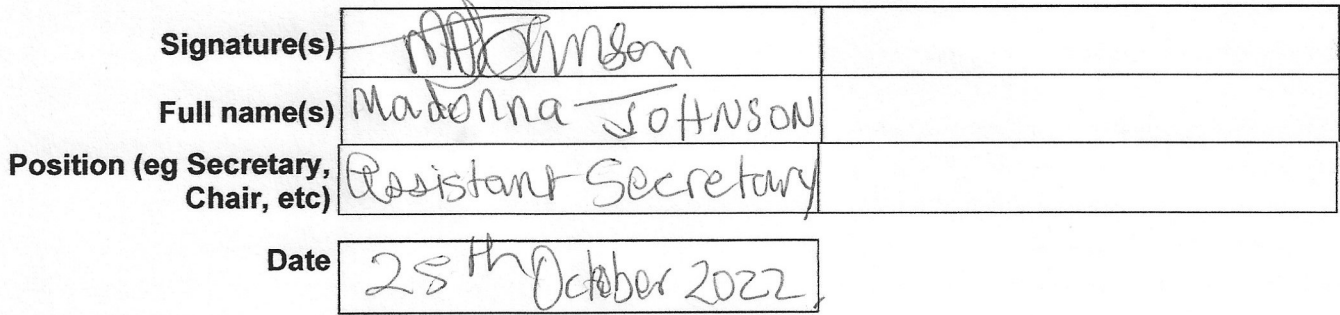 Signature(s) MJohnson
Full name(s) Madonna JOHNSON
Position (eg Secretary, Chair, etc) Assistant Secretary
Date 25th October 2022.